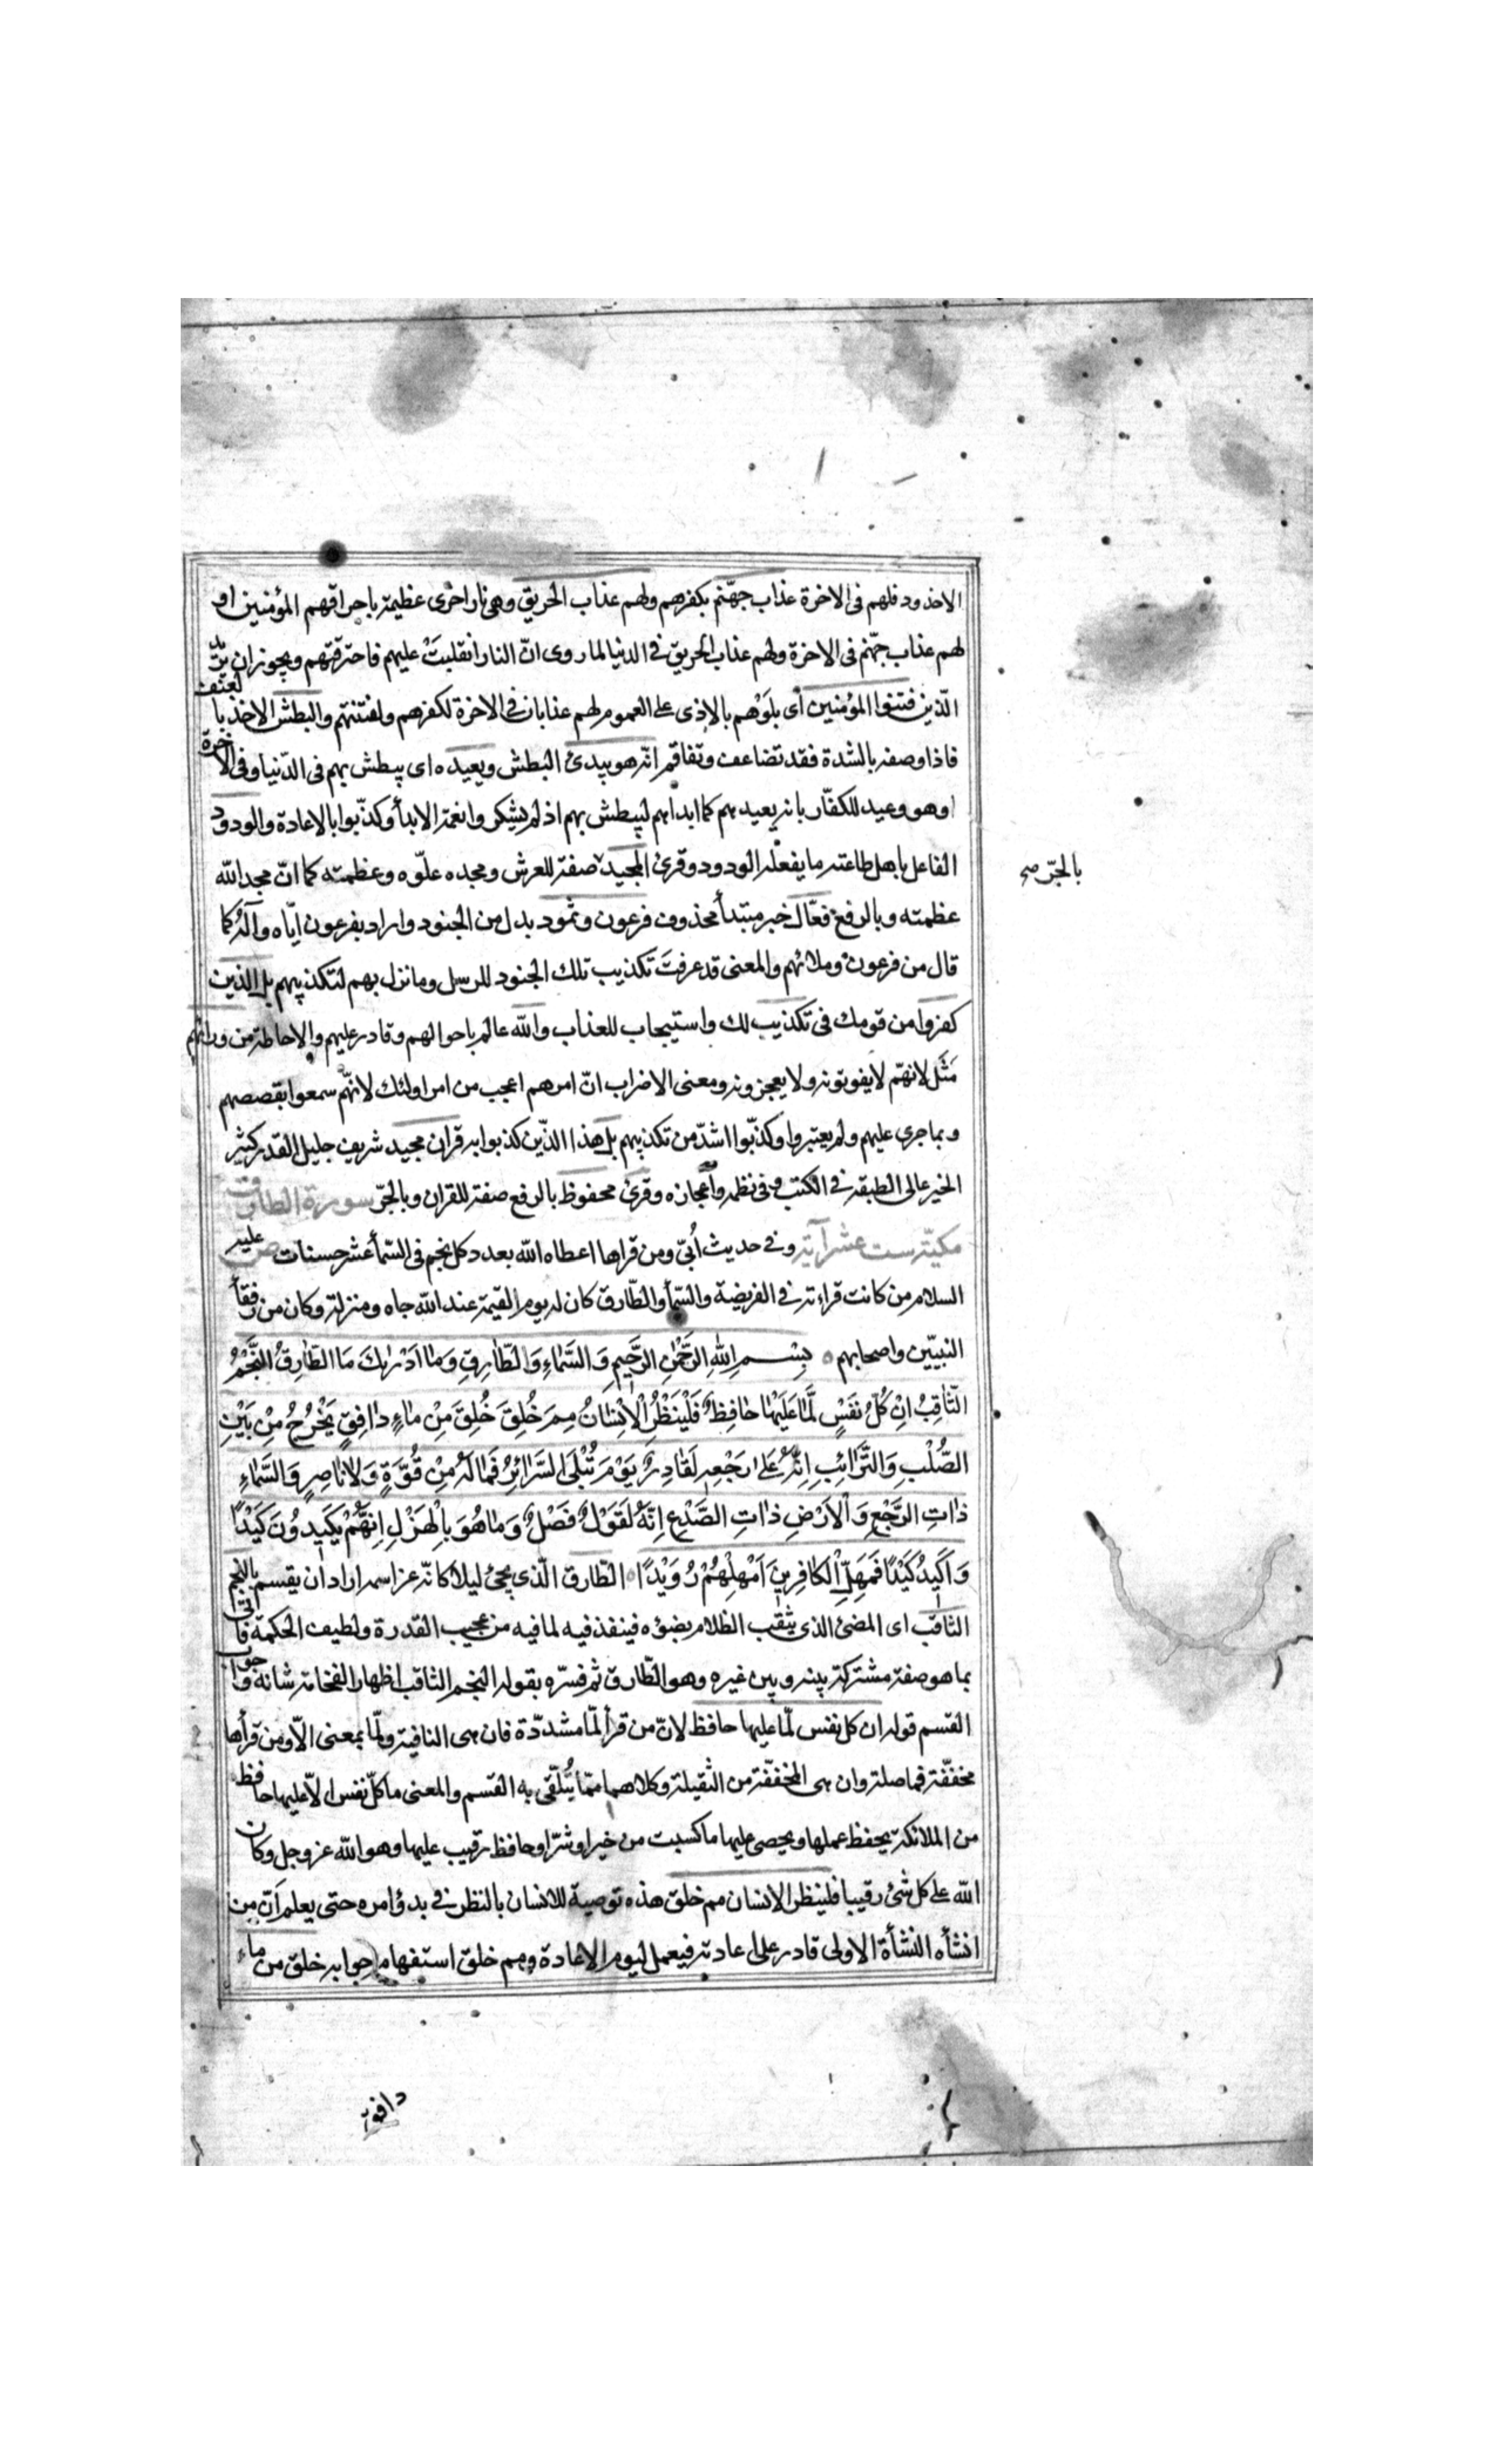 الاخدود فلهم فى الاخرة عذاب جهّنم بكفرهم ولهم عذاب الحريق وهى نار اخرى عظيمة باحراقهم المؤمنين او
لهم عذاب جهّنم فى الاخرة ولهم عذاب الحريق فى الدنيا لما روى انّ النار انقلبتْ عليهم فاحترقتهم ويجوز ان يريد
الّذين فتنوا المؤمنين أى بلَوْهم بالاذى على العموم لهم عذابان فى الاخرة لكفرهم ولفتنتهم والبطش الاخذ بالعنف
فاذا وصف بالشدة فقد تضاعف وتفاقم انّه هو يبدئ البطش ويعيده اى يبطش بهم فى الدّنيا وفى الاخرة
او هو وعيد للكفّار بانه يعيدهم كما ابداهم ليبطش بهم اذ لم يشكروا نعمة الابدأ وكذّبوا بالاعادة والودود
الفاعل باهل طاعته ما يفعله الودود وقرئ المجيد صفة للعرش ومجده علوّه وعظمته كما انّ مجد الله
بالجّر صح
عظمته وبالرفع فعّال خبر مبتدأ محذوف فرعون وثمود بدل من الجنود واراد بفرعون ايّاه وآلهُ كما
قال من فرعون وملائهم والمعنى قد عرفتَ تكذيب تلك الجنود للرسل وما نزل بهم لتكذيبهم بل الذين
كفروا من قومك فى تكذيب لك واستيجاب للعذاب والله عالم باحوالهم وقادر عليهم والاحاطة من ورائهم
مَثَل لانهّم لا يفوتونه ولا يعجزونه ومعنى الاضراب انّ امرهم اعجب من امر اولئك لانهّم سمعوا بقصصهم
وبما جرى عليهم ولم يعتبروا وكذّبوا اشدّ من تكذيبهم بل هذا الذّين كذبوا به قران مجيد شريف جليل القدر كثير
الخير عالى الطبقة فى الكتب وفى نظمه واعجازه وقرئ محفوظ بالرفع صفة للقران وبالجّر سورة الطارق
مكيّة ست عشر آية وفى حديث اُبىّ ومن قراها اعطاه الله بعدد كل نجم فى السّمأ عشر حسنات ص عليه
السلام من كانت قراءته فى الفريضة والسّمأ والطّارق كان له يوم القيمة عند الله جاه ومنزلة وكان من رفقأ
النبيّين واصحابهم بِسْمِ اللهِ الرَّحْمٰنِ الرَّحيمِ وَالسَّمَاءِ وَالطّارِقِ وَمٰا اَدْرٰيكَ مَا الطّارِقُ النَّجْمُ
الثّاقِبُ اِنْ كُلُّ نَفْسٍ لَمَّا عَلَيْهٰا حٰافِظٌ فَلْيَنْظُرِ الْاِنْسٰانُ مِمَّ خُلِقَ خُلِقَ مِنْ مٰاءٍ دٰافِقٍ يَخْرُجُ مِنْ بَيْنِ
الصُّلْبِ وَالتَّرَائِبِ اِنَّهُ عَلىٰ رَجْعِهِ لَقٰادِرٌ يَوْمَ تُبْلَى السَّرَائِرُ فَمٰا لَهُ مِنْ قُوَّةٍ وَلٰا نٰاصِرٍ وَالسَّمٰاءِ
ذٰاتِ الرَّجْعِ وَالْاَرْضِ ذٰاتِ الصَّدْعِ اِنَّهُ لَقَوْلٌ فَصْلٌ وَمٰا هُوَ بِالْهَزْلِ اِنَّهُمْ يَكيدُونَ كَيْدًا
وَاَكيدُ كَيْدًا فَمَهِّلِ الْكافِرينَ اَمْهِلْهُمْ رُوَيْدًا الطّارق الّذى يجئ ليلا كانّه عز اسمه اراد ان يقسم بالنجم
الثاقب اى المضئ الذى يثقب الظلام بضوءه فينفذ فيه لما فيه من عجيب القدرة ولطيف الحكمة فاتى
بما هو صفة مشتركة بينه وبين غيره وهو الطّارق ثم فسّره بقوله النجم الثاقب اظهارا لفخامة شانه وجواب
القسم قوله ان كل نفس لّما عليها حافظ لانّ من قرأ لّما مشدّدة فان هى النافية ولّما بمعنى الّا ومن قرأها
مخفّفة فما صلة وان هى المخفّفة من الثقيلة وكلاهما ممّا يُتلّقى به القسم والمعنى ما كلّ نفس الّا عليها حافظ
من الملائكة يحفظ عملها ويحصى عليها ما كسبت من خير او شرّ او حافظ رقيب عليها وهو الله عز وجل وكان
الله على كل شئ رقيبا فلينظر الانسان مم خلق هذه توصية للانسان بالنظر فى بدؤ امره حتى يعلم اَنّ من
انشأه النشأة الاولى قادر على اعادته فيعمل ليوم الاعادة ومم خلق استفهام جوابه خلق من ماء
دافق